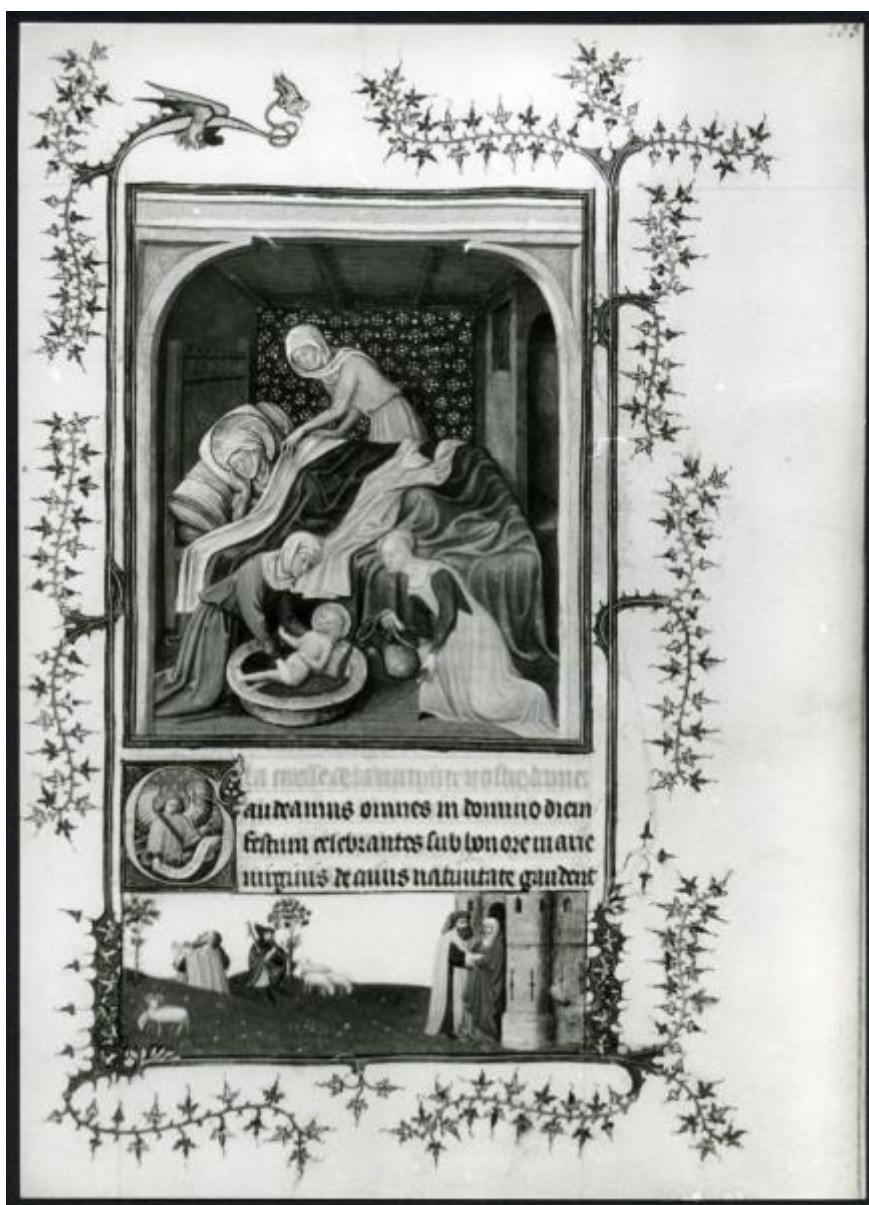 la messe de la nativite nostre dame
Gaudeamus omnes in domino diem
festum celebrantes sub honore marie
virginis de cuius nativitate gaudent